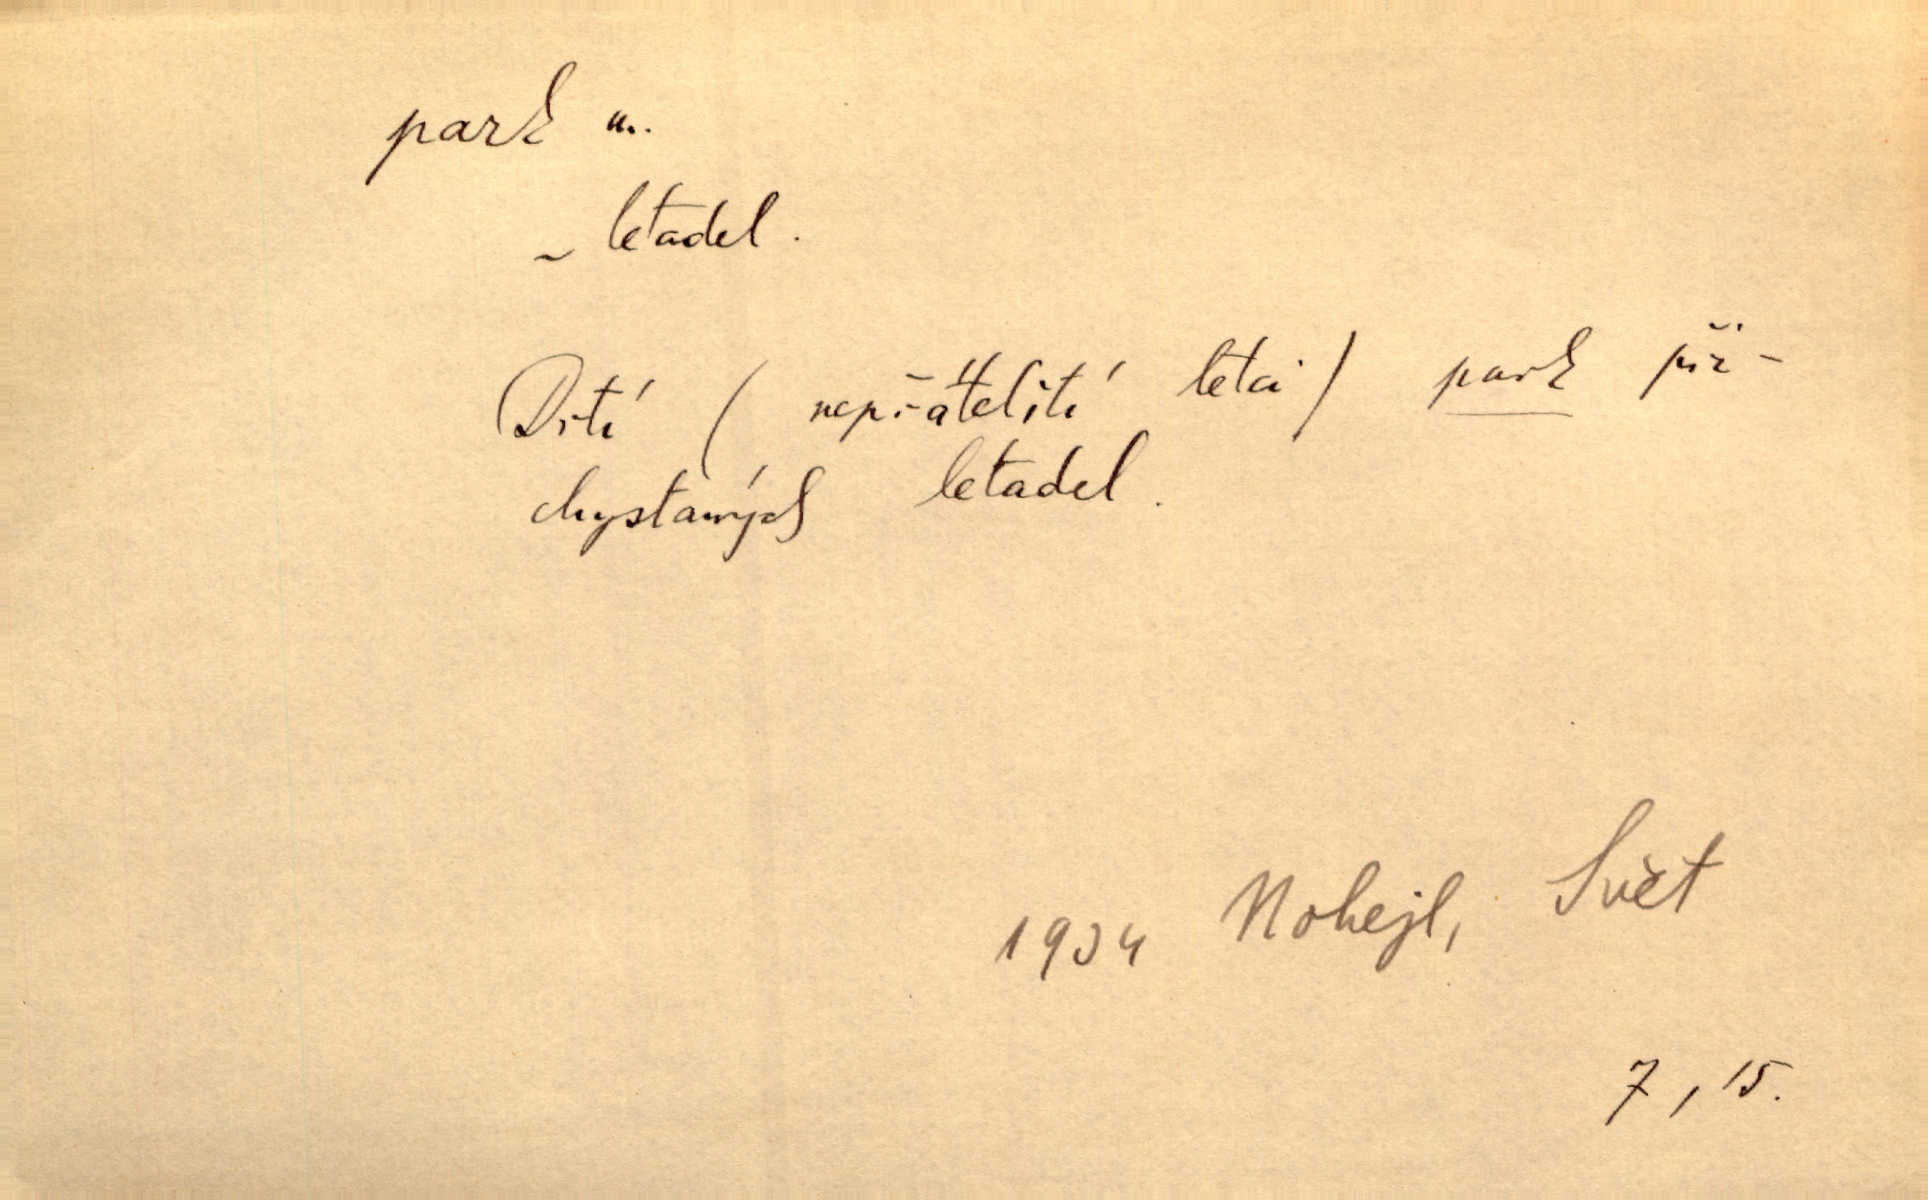 park m.
~ letadel.
Drtí (nepřátelští letci) park při-
chystaných letadel.
1934 Nohejl, Svět
7, 15.